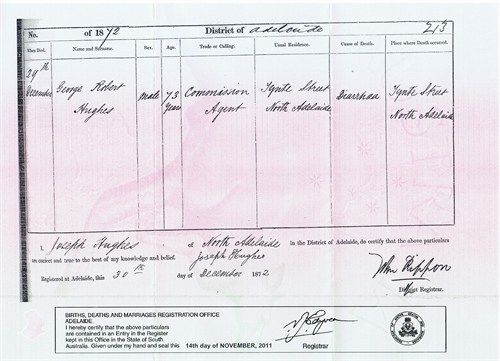 No. of 1872 District of Adelaide 213
When Died. Name and Surname. Sex. Age. Trade or Calling. Usual Residence. Cause of Death. Place where Death occurred.
29th December George Robert Hughes Male 73 Years Commission Agent Tynte Street North Adelaide Diarrhœa Tynte Street North Adelaide
I, Joseph Hughes of North Adelaide in the District of Adelaide, do certify that the above particulars
are correct and true to the best of my knowledge and belief. Joseph Hughes
Registered at Adelaide, this 30th day of December 1872
John Rippon
District Registrar.
BIRTHS, DEATHS AND MARRIAGES REGISTRATION OFFICE
ADELAIDE.
I hereby certify that the above particulars
are contained in an Entry in the Register
kept in this Office in the State of South
Australia. Given under my hand and seal this 14th day of NOVEMBER, 2011
Registrar